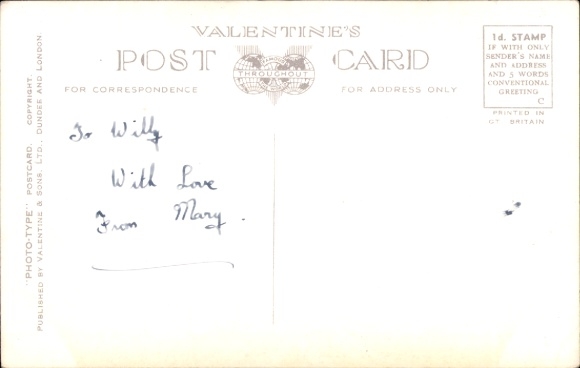 VALENTINE'S
POST CARD
THROUGHOUT
FOR CORRESPONDENCE
FOR ADDRESS ONLY
1d. STAMP
IF WITH ONLY
SENDER'S NAME
AND ADDRESS
AND 5 WORDS
CONVENTIONAL
GREETING
C
PRINTED IN
GT. BRITAIN
"PHOTO-TYPE" POSTCARD. COPYRIGHT.
PUBLISHED BY VALENTINE & SONS, LTD., DUNDEE AND LONDON
To Willy
With Love
From Mary.